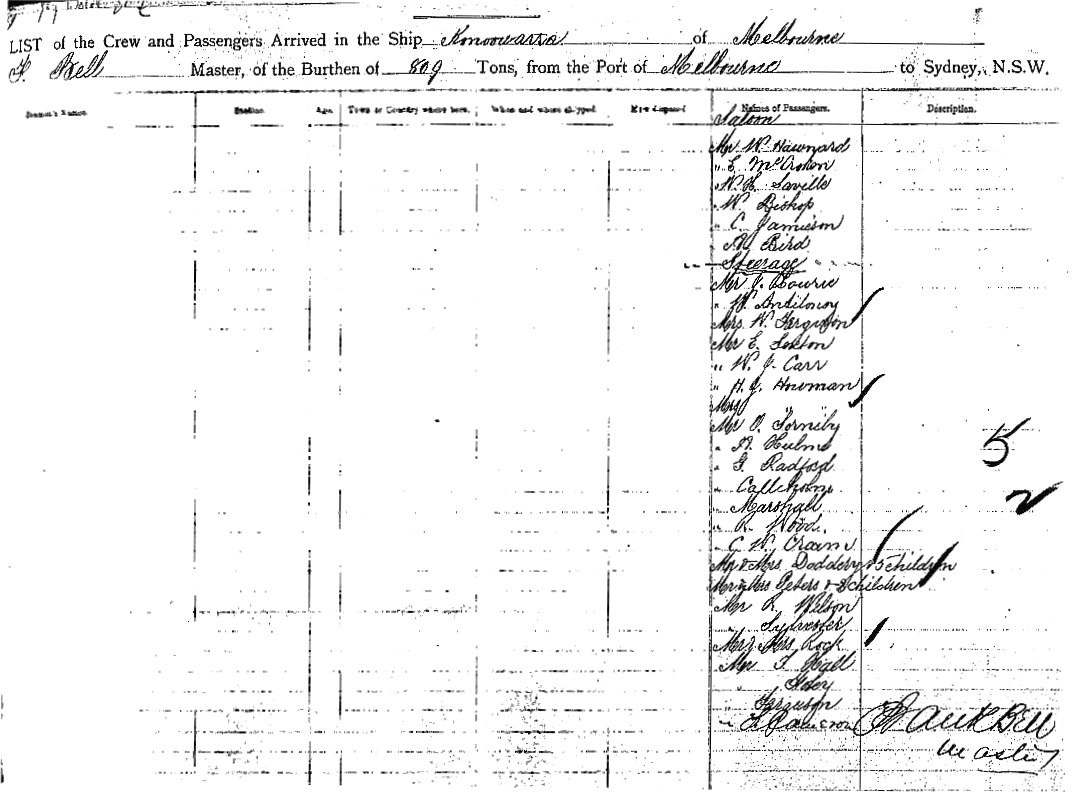 LIST of the Crew and Passengers Arrived in the Ship Konoowarra of Melbourne
F. Bell Master, of the Burthen of 809 Tons, from the Port of Melbourne to Sydney, N.S.W.
Seaman's Names Station Age Town or Country where born. When and where shipped How disposed Names of Passengers. Description.
Saloon
Mr W. Haworard
" E.
W. H. Saville
" W. Bishop
" C. Jamieson
" Bird
Steerage
Mr J.
" W.
Mrs W. Ferguson
Mr E. Sexton
" W. J. Carr
" H. J.
Mrs "
Mr O.
" Hulme
" G. Radford
"
" Marshall
" R. Wood
" C. W.
5
2
Mr & Mrs Doddery & 5 children
Mr & Mrs Peters & 2 children
Mr R. Wilson
" Sylvester
Mr & Mrs Rock
Mr T. Hall
" Foley
" Ferguson
" Cameron Frank Bell
Master